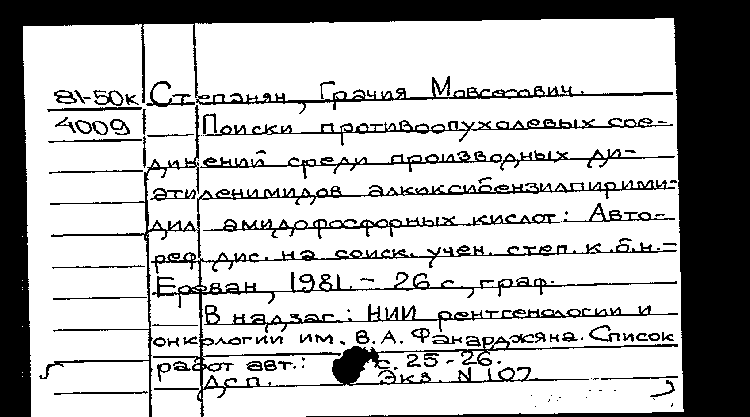 81-50к Степанян, Грачия Мовсесович.
4009 Поиски противоопухолевых сое-
динений среди производных ди-
этиленимидов алкоксибензилпирими-
дил амидофосфорных кислот: Авто-
реф. дис. на соиск. учен. степ. к.б.н.-
Ереван, 1981. - 26 с., граф.
В надзаг.: НИИ рентгенологии и
онкологии им. В.А. Фанарджяна. Список
работ авт.: с. 25-26.
Дсп. Экз. N 107.